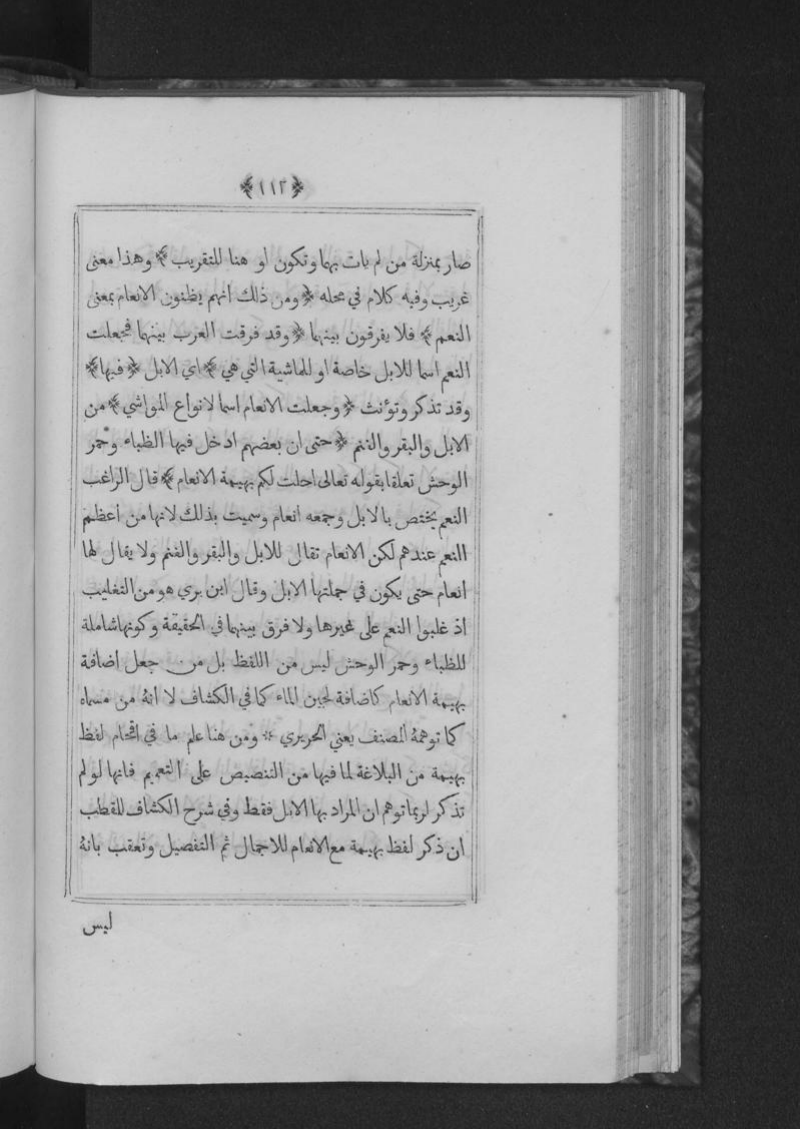 ﴿١١٢﴾
صار بمنزلة من لم يات بهما وتكون او هنا للتقريب ﴾ وهذا معنى
غريب وفيه كلام في محله ﴿ ومن ذلك انهم يظنون الانعام بمعنى
النعم ﴾ فلا يفرقون بينهما ﴿ وقد فرقت العرب بينهما فجعلت
النعم اسما للابل خاصة او للماشية التي هي ﴾ اي الابل ﴿ فيها ﴾
وقد تذكر وتؤنث ﴿ وجعلت الانعام اسما لانواع المواشي ﴾ من
الابل والبقر والغنم ﴿ حتى ان بعضهم ادخل فيها الظباء وحمر
الوحش تعلقا بقوله تعالى احلت لكم بهيمة الانعام ﴾ قال الراغب
النعم يختص بالابل وجمعه انعام وسميت بذلك لانها من اعظم
النعم عندهم لكن الانعام تقال للابل والبقر والغنم ولا يقال لها
انعام حتى يكون في جملتها الابل وقال ابن بري هو من التغليب
اذ غلبوا النعم على غيرها ولا فرق بينهما في الحقيقة وكونها شاملة
للظباء وحمر الوحش ليس من اللفظ بل من جعل اضافة
بهيمة الانعام كاضافة لجين الماء كما في الكشاف لا انهُ من مسماه
كما توهمهُ المصنف يعني الحريري * ومن هنا علم ما في اقحام لفظ
بهيمة من البلاغة لما فيها من التنصيص على التعميم فانها لو لم
تذكر لربما توهم ان المراد بها الابل فقط وفي شرح الكشاف للقطب
ان ذكر لفظ بهيمة مع الانعام للاجمال ثم التفصيل وتعقب بانهُ
ليس